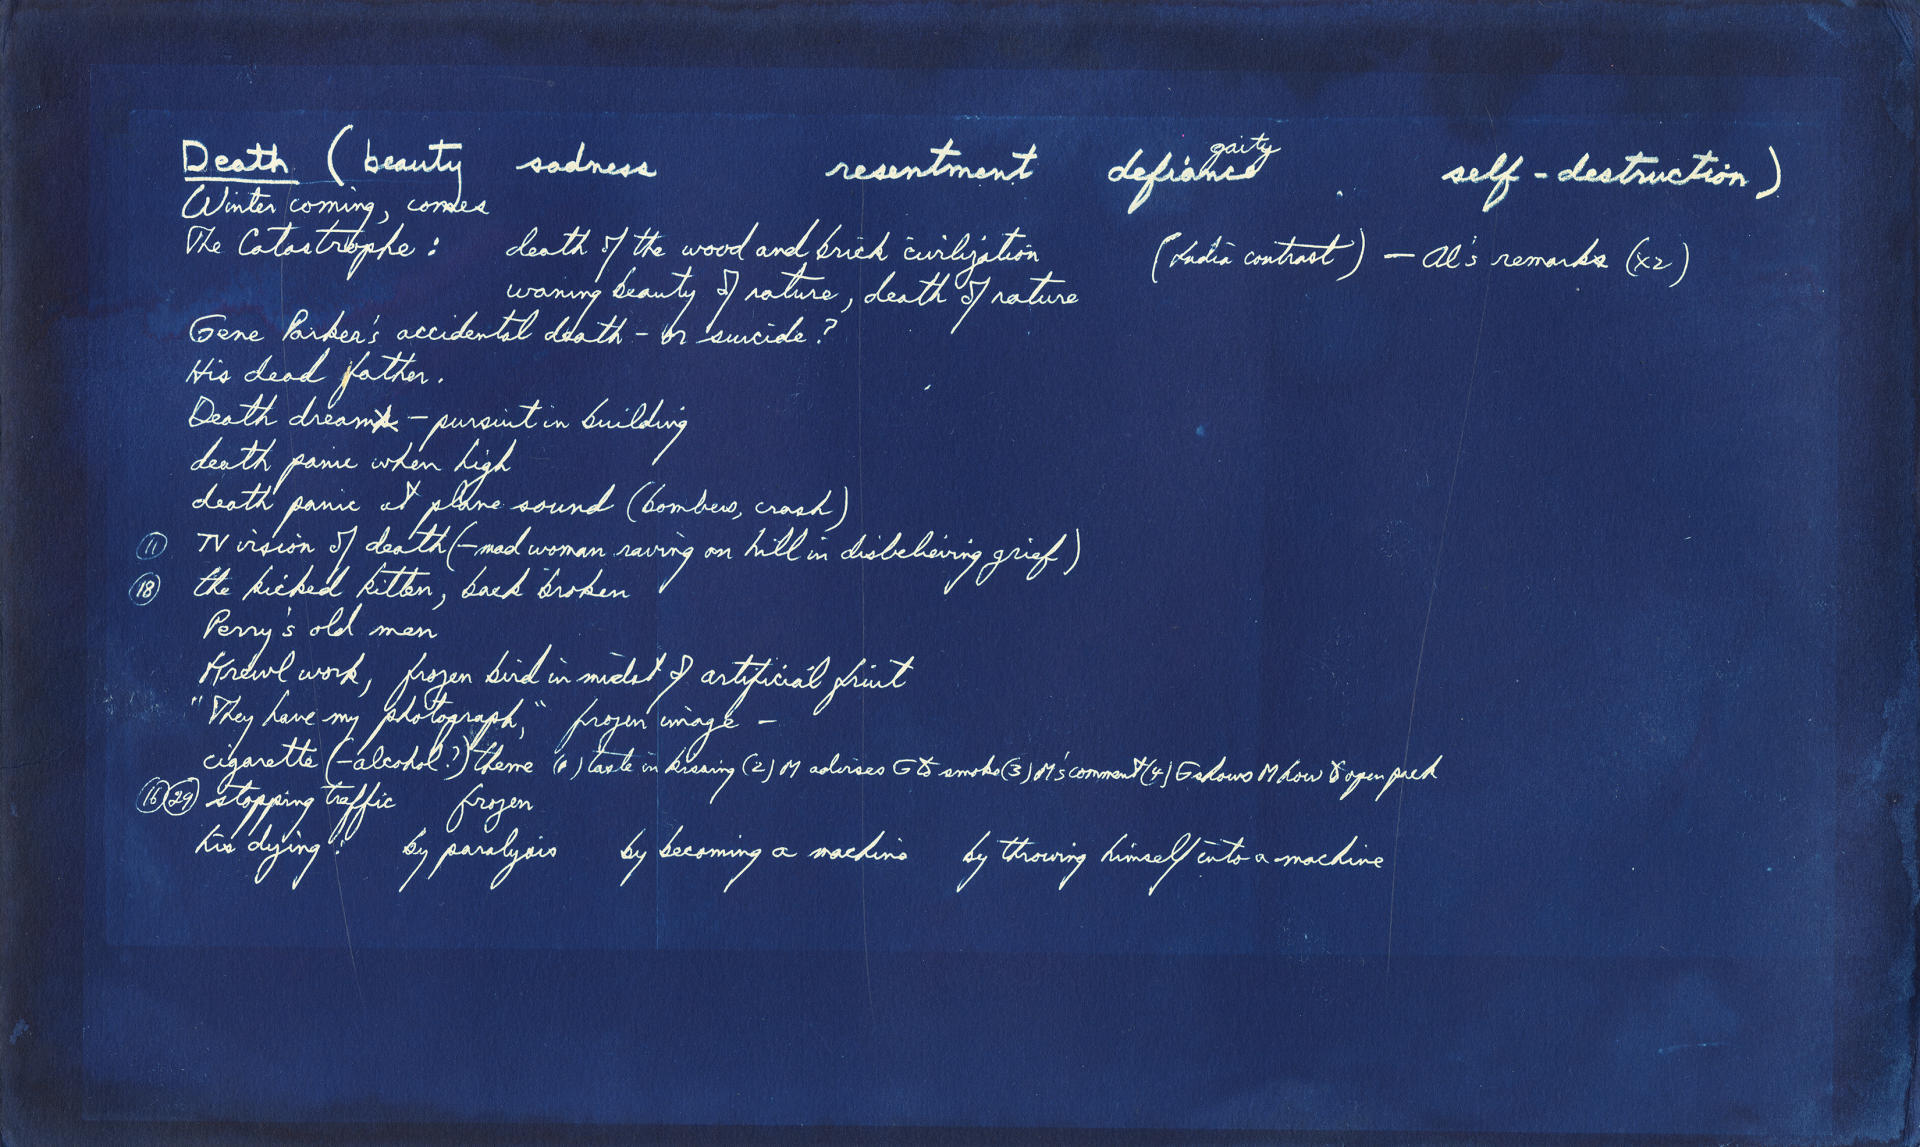 Death (beauty sadness resentment defiance gaity self-destruction)
Winter coming, comes
The Catastrophe: death of the wood and brick civilization (India contrast) — Al's remarks (x2)
waning beauty of nature, death of nature
Gene Parker's accidental death - or suicide?
His dead father.
Death dream - pursuit in building
death panic when high
death panic at plane sound (bombers, crash)
11 TV vision of death (- mad woman raving on hill in disbelieving grief)
18 the kicked kitten, back broken
Perry's old men
work, frozen bird in midst of artificial fruit
"They have my photograph," frozen image -
cigarette (-alcohol?) theme (1) taste in kissing (2) M advises G to smoke (3) M's comment (4) G shows M how to open pack
16 29 stopping traffic frozen
his dying: by paralysis by becoming a machine by throwing himself into a machine